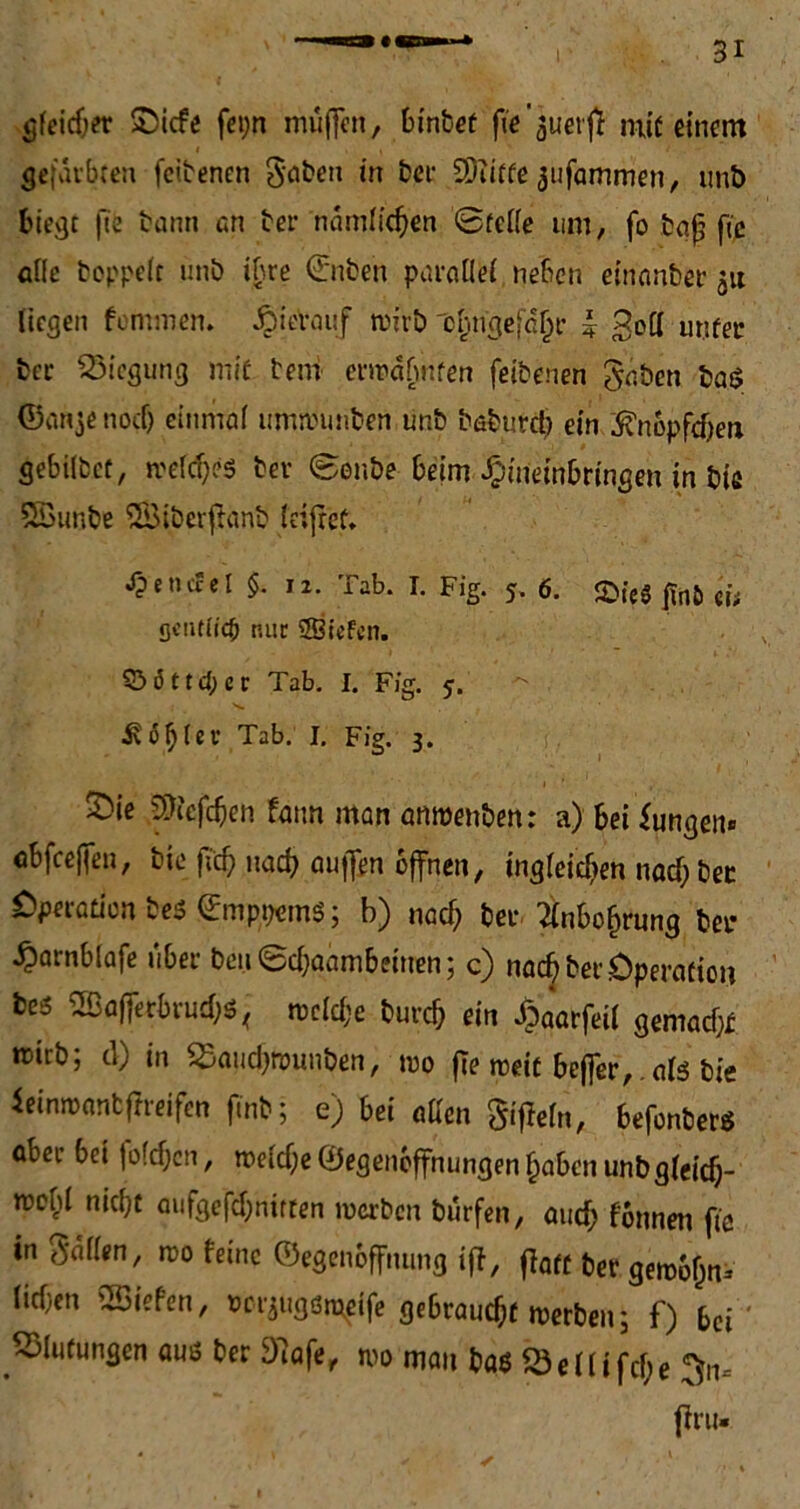 31
gleicher Dicke seyn müssen, bindet sie zuerst mit einem
gefärbten seidenen Faden in der Mitte zusammen, und
biegt sie dann an der nämlichen Stelle um, so daß sie
alle doppelt und ihre Enden parallel neben einander zu
liegen kommen. Hierauf wird ohngefähr ¼ Zoll unter
der Biegung mit dem erwähnten seidenen Faden das
Ganze noch einmal umwunden und dadurch ein Knöpfchen
gebildet, welches der Sonde beim Hineinbringen in die
Wunde Widerstand leistet.
Henckel §. 12. Tab. I. Fig. 5. 6. Dies sind ei-
gentlich nur Wieken.
Böttcher Tab. I. Fig. 5.
Köhler Tab. I. Fig. 3.
Die Meschen kann man anwenden: a) bei Lungen-
abscessen, die sich nach aussen öffnen, ingleichen nach der
Operation des Empyems; b) nach der Anbohrung der
Harnblase über den Schaambeinen; c) nach der Operation
des Wasserbruchs, welche durch ein Haarseil gemacht
wird; d) in Bauchwunden, wo sie weit besser, als die
Leinwandstreifen sind; e) bei allen Fisteln, besonders
aber bei solchen, welche Gegenöffnungen haben und gleich-
wohl nicht aufgeschnitten werden dürfen, auch können sie
in Fällen, wo keine Gegenöffnung ist, statt der gewöhn-
lichen Wieken, vorzugsweise gebraucht werden; f) bei
Blutungen aus der Nase, wo man das Bellische In-
stru-